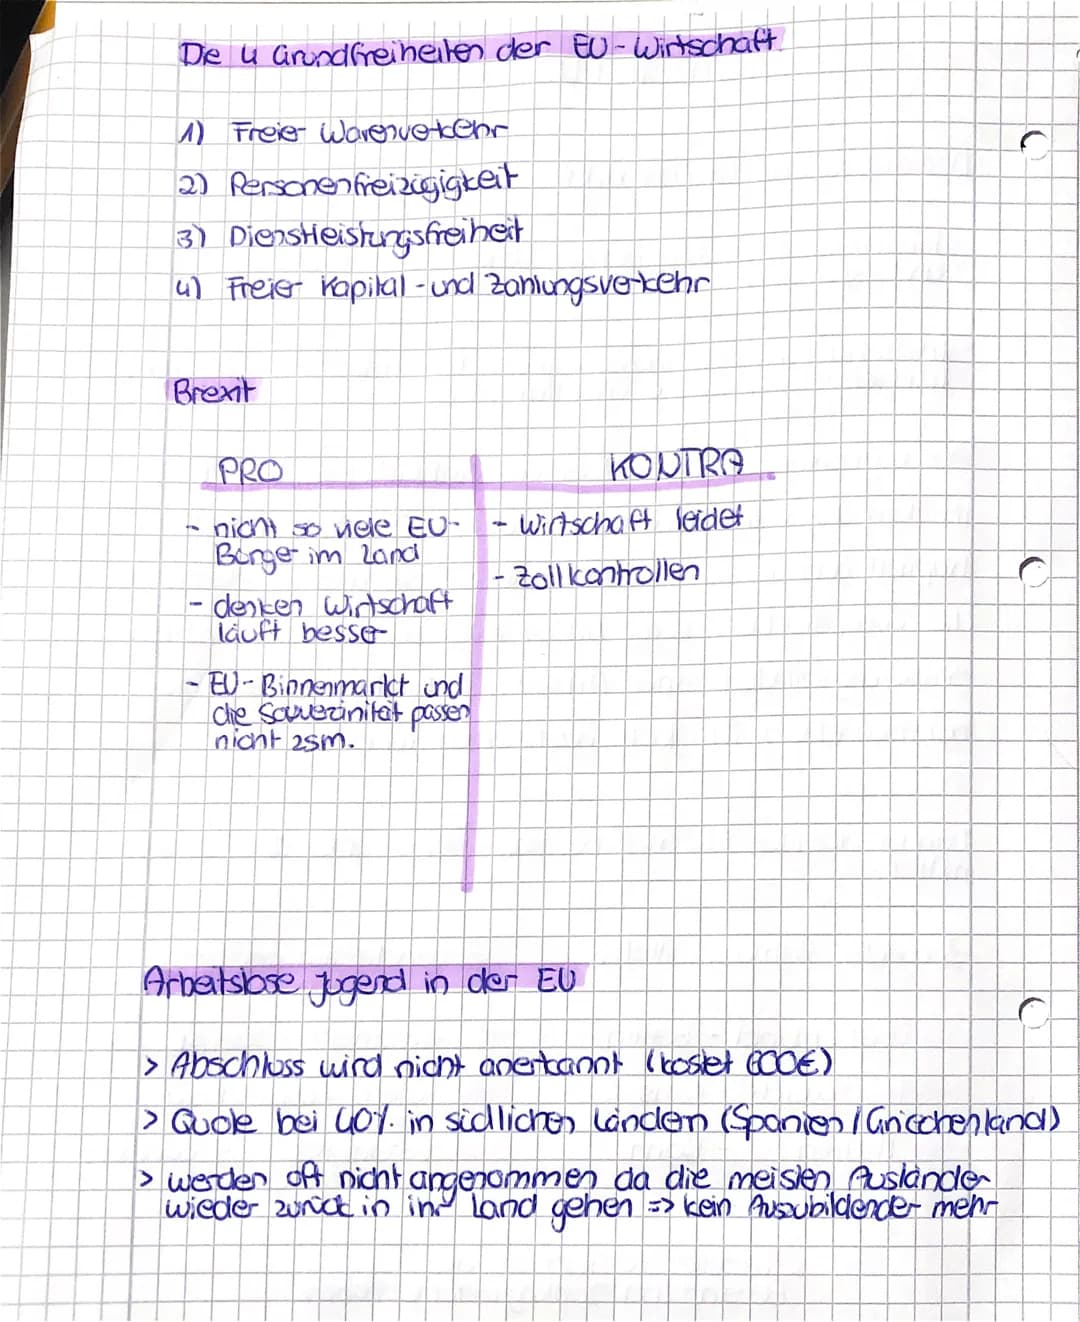 Die 4 Grundfreiheiten der EU-Wirtschaft
1) Freier Warenverkehr
2) Personenfreizügigkeit
3) Dienstleistungsfreiheit
4) Freier Kapital-und Zahlungsverkehr
Brexit
PRO
- nicht so viele EU-
Bürger im Land
- denken Wirtschaft
läuft besser
- EU-Binnenmarkt und
die Souverinität passen
nicht zsm.
KONTRA
- Wirtschaft leidet
- Zollkontrollen
Arbeitslose Jugend in der EU
> Abschluss wird nicht anerkannt (kostet 600€)
> Quote bei 40% in südlichen Ländern (Spanien/Griechenland)
> werden oft nicht angenommen da die meisten Ausländer
wieder zurück in ihr Land gehen => kein Auszubildender mehr